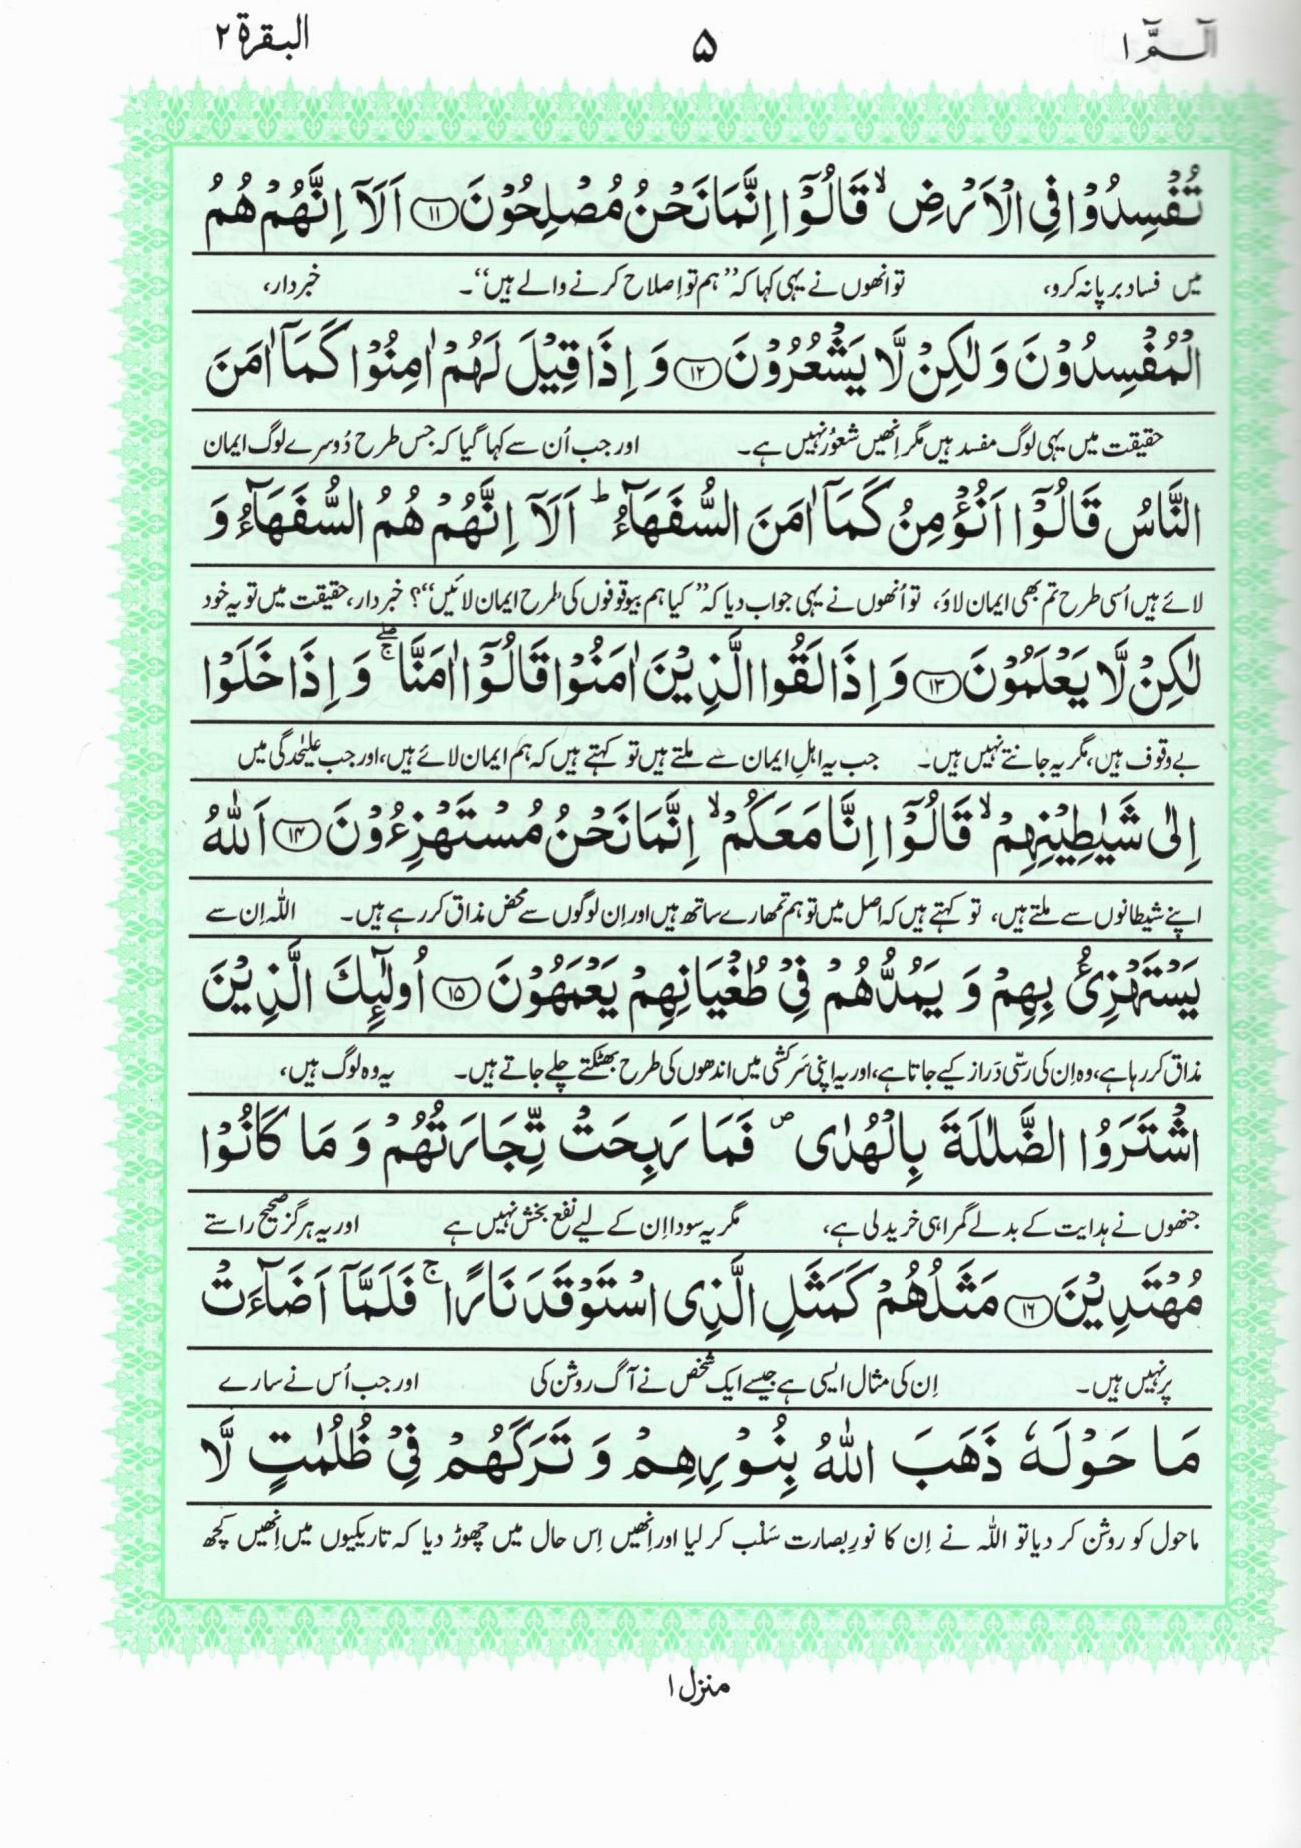 الٓـمّٓ ١
۵
البقرة ٢
تُفْسِدُوْا فِی الْاَرْضِ ۙ قَالُوْۤا اِنَّمَا نَحْنُ مُصْلِحُوْنَ ﴿۱۱﴾ اَلَاۤ اِنَّهُمْ هُمُ
میں فساد برپا نہ کرو، تو انھوں نے یہی کہا کہ ”ہم تو اِصلاح کرنے والے ہیں“۔ خبردار،
الْمُفْسِدُوْنَ وَ لٰكِنْ لَّا یَشْعُرُوْنَ ﴿۱۲﴾ وَ اِذَا قِیْلَ لَهُمْ اٰمِنُوْا كَمَاۤ اٰمَنَ
حقیقت میں یہی لوگ مفسد ہیں مگر اِنھیں شعُور نہیں ہے۔ اور جب اُن سے کہا گیا کہ جس طرح دُوسرے لوگ ایمان
النَّاسُ قَالُوْۤا اَنُؤْمِنُ كَمَاۤ اٰمَنَ السُّفَهَآءُ ؕ اَلَاۤ اِنَّهُمْ هُمُ السُّفَهَآءُ وَ
لائے ہیں اُسی طرح تم بھی ایمان لاؤ، تو اُنھوں نے یہی جواب دیا کہ ”کیا ہم بیوقوفوں کی طرح ایمان لائیں“؟ خبردار، حقیقت میں تو یہ خود
لٰكِنْ لَّا یَعْلَمُوْنَ ﴿۱۳﴾ وَ اِذَا لَقُوا الَّذِیْنَ اٰمَنُوْا قَالُوْۤا اٰمَنَّا ۖۚ وَ اِذَا خَلَوْا
بے وقوف ہیں، مگر یہ جانتے نہیں ہیں۔ جب یہ اہلِ ایمان سے ملتے ہیں تو کہتے ہیں کہ ہم ایمان لائے ہیں، اور جب علیٰحدگی میں
اِلٰی شَیٰطِیْنِهِمْ ۙ قَالُوْۤا اِنَّا مَعَكُمْ ۙ اِنَّمَا نَحْنُ مُسْتَهْزِءُوْنَ ﴿۱۴﴾ اَللّٰهُ
اپنے شیطانوں سے ملتے ہیں، تو کہتے ہیں کہ اصل میں تو ہم تمھارے ساتھ ہیں اور اِن لوگوں سے محض مذاق کر رہے ہیں۔ اللہ اِن سے
یَسْتَهْزِئُ بِهِمْ وَ یَمُدُّهُمْ فِیْ طُغْیَانِهِمْ یَعْمَهُوْنَ ﴿۱۵﴾ اُولٰٓئِكَ الَّذِیْنَ
مذاق کر رہا ہے، وہ اِن کی رسّی دَراز کیے جاتا ہے، اور یہ اپنی سَرکشی میں اندھوں کی طرح بھٹکتے چلے جاتے ہیں۔ یہ وہ لوگ ہیں،
اشْتَرَوُا الضَّلٰلَةَ بِالْهُدٰی ۪ فَمَا رَبِحَتْ تِّجَارَتُهُمْ وَ مَا كَانُوْا
جنھوں نے ہدایت کے بدلے گمراہی خرید لی ہے، مگر یہ سودا اِن کے لیے نفع بخش نہیں ہے اور یہ ہرگز صحیح راستے
مُهْتَدِیْنَ ﴿۱۶﴾ مَثَلُهُمْ كَمَثَلِ الَّذِی اسْتَوْقَدَ نَارًا ۚ فَلَمَّاۤ اَضَآءَتْ
پر نہیں ہیں۔ اِن کی مثال ایسی ہے جیسے ایک شخص نے آگ روشن کی اور جب اُس نے سارے
مَا حَوْلَهٗ ذَهَبَ اللّٰهُ بِنُوْرِهِمْ وَ تَرَكَهُمْ فِیْ ظُلُمٰتٍ لَّا
ماحول کو روشن کر دیا تو اللہ نے اِن کا نورِ بصارت سَلْب کر لیا اور اِنھیں اِس حال میں چھوڑ دیا کہ تاریکیوں میں اِنھیں کچھ
منزل ١